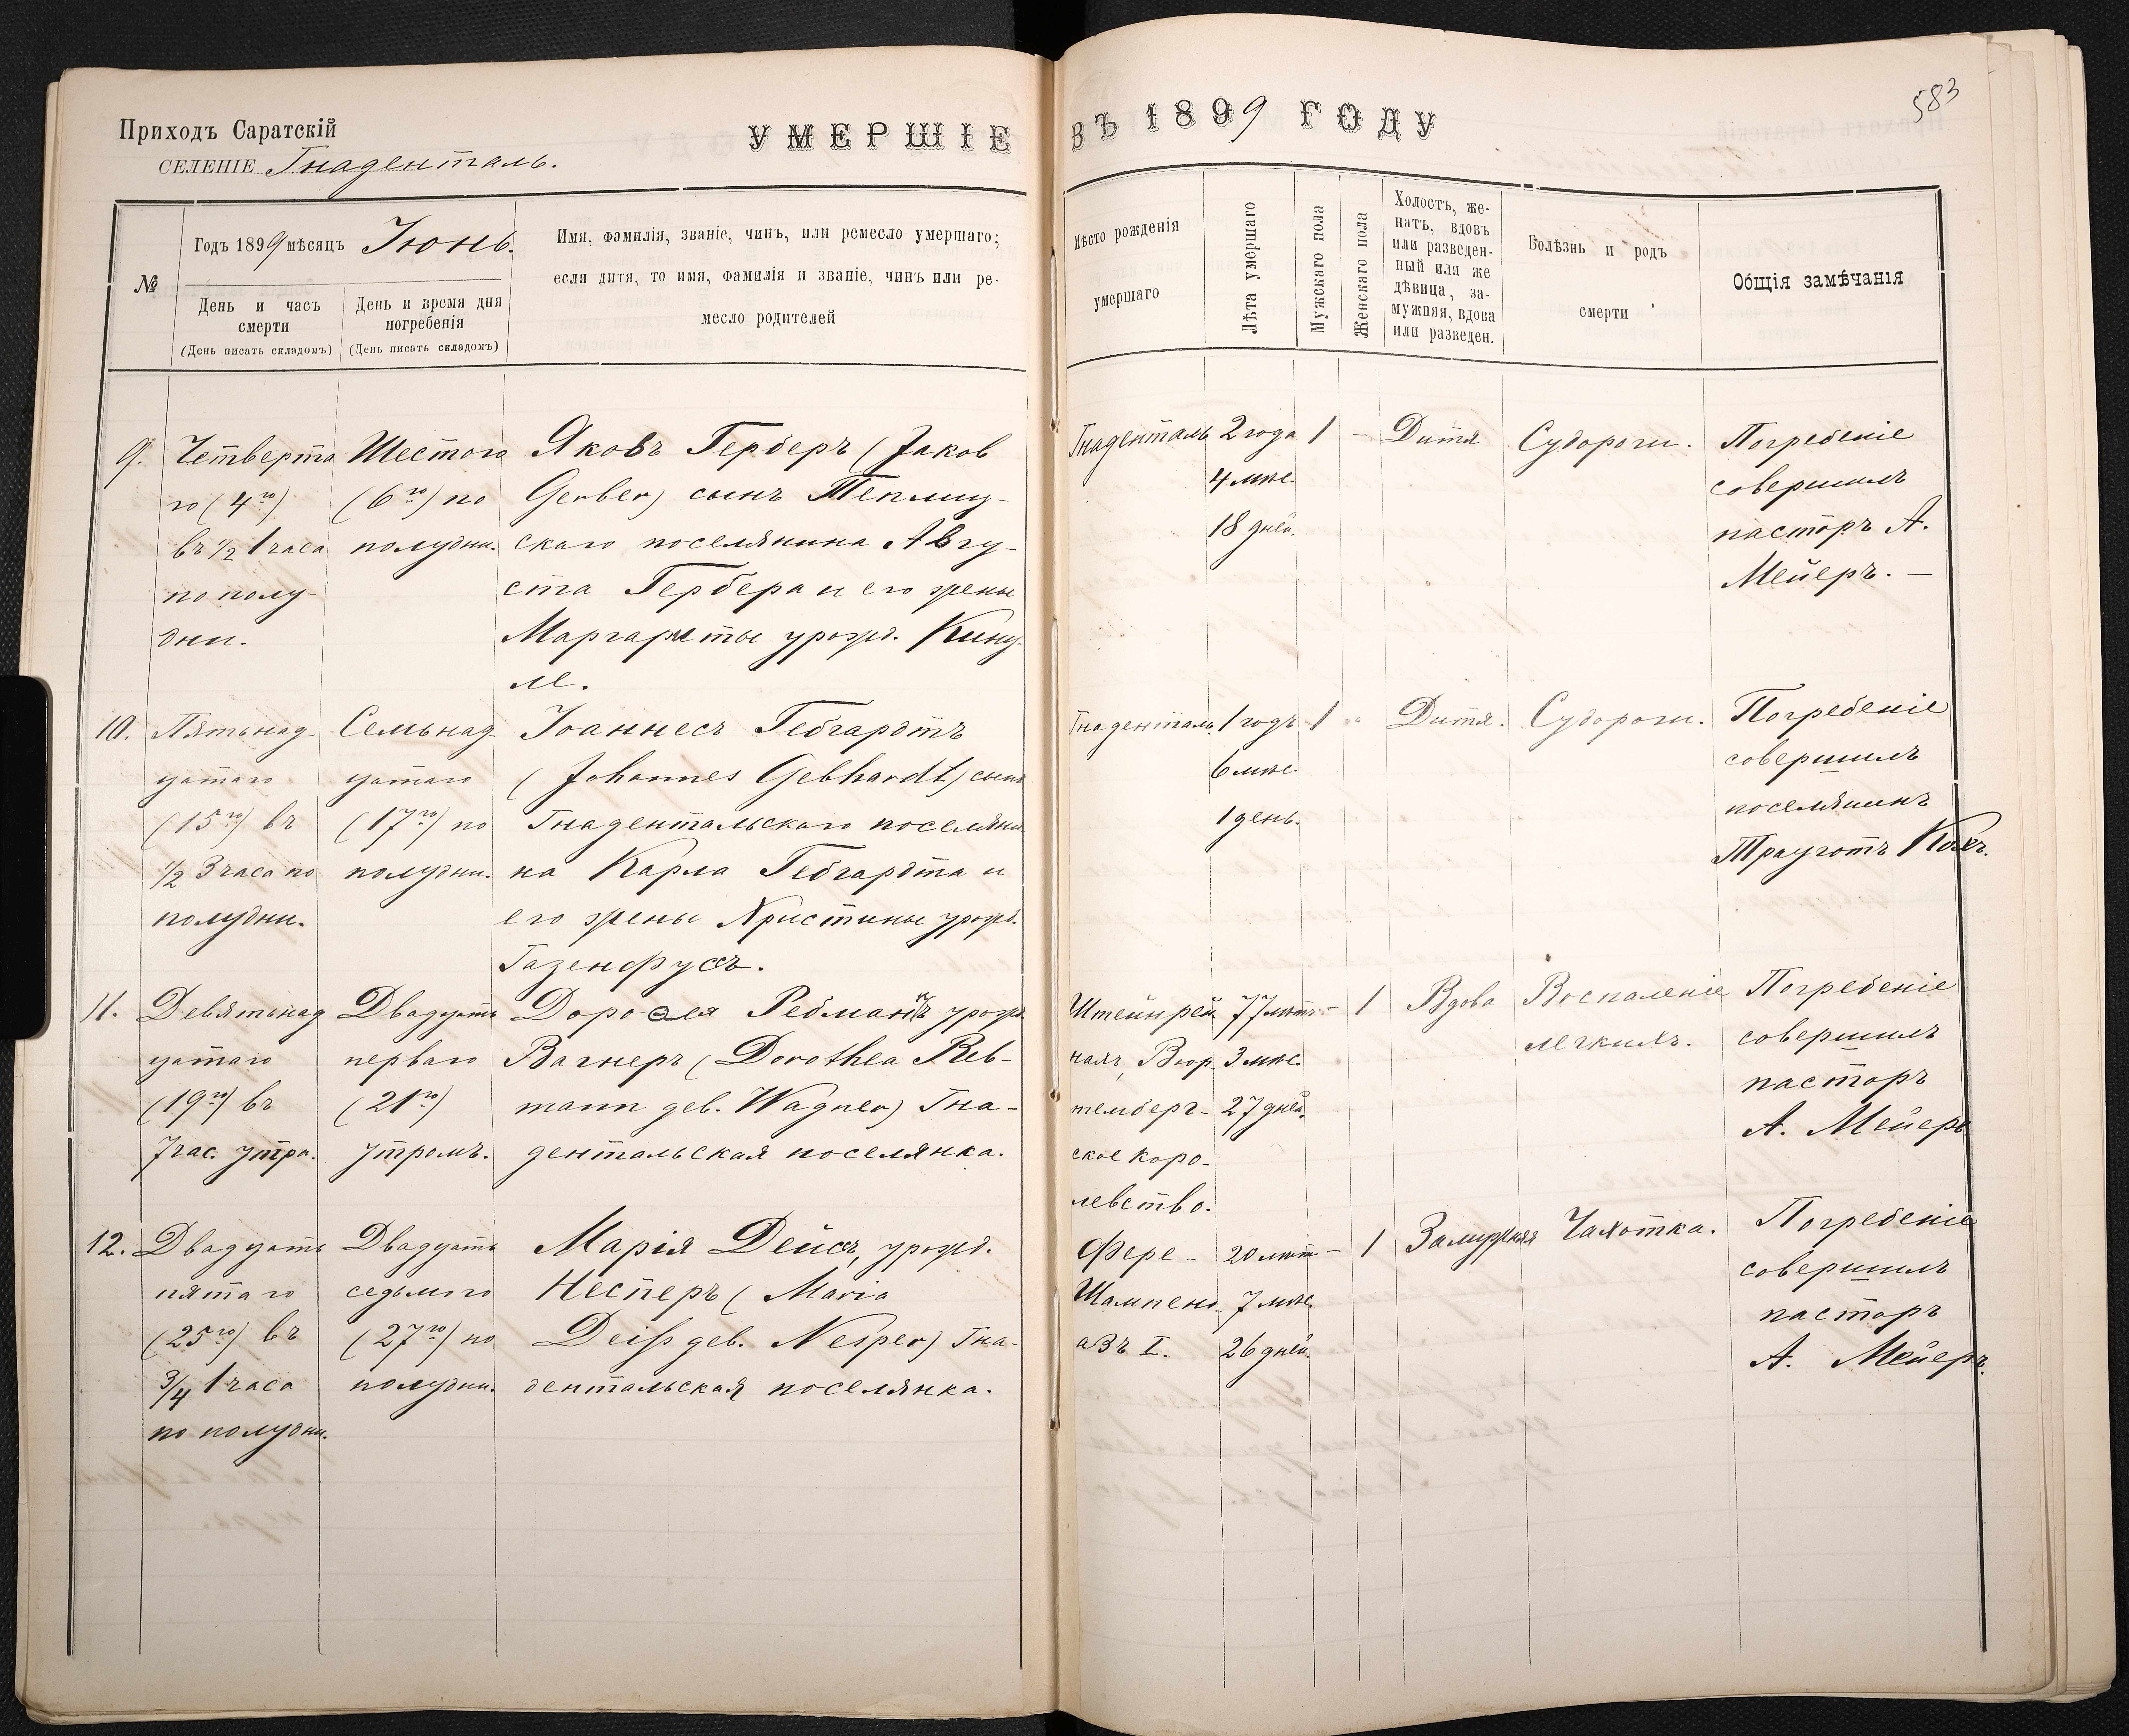 Приходъ Саратскій
СЕЛЕНІЕ Гнаденталь.
УМЕРШІЕ
ВЪ 1899 ГОДУ
583
№
Годъ 1899 мѣсяцъ Іюнь.
День и часъ
смерти
(День писать складомъ)
День и время дня
погребенія
(День писать складомъ)
Имя, фамилія, званіе, чинъ, или ремесло умершаго;
если дитя, то имя, фамилія и званіе, чинъ или ре-
месло родителей
Мѣсто рожденія
умершаго
Лѣта умершаго
Мужскаго пола
Женскаго пола
Холостъ, же-
натъ, вдовъ
или разведен-
ный или же
дѣвица, за-
мужняя, вдова
или разведен.
Болѣзнь и родъ
смерти
Общія замѣчанія
9.
Четверта
го (4го)
въ ½ 1 часа
по полу-
дни.
Шестого
(6го) по
полудни.
Яковъ Герберъ (Jakob
Gerber) сынъ Теплиц-
скаго поселянина Авгу-
ста Гербера и его жены
Маргариты урожд. Кинц-
ле.
Гнаденталь
2 года
4 мѣс.
18 дней.
1
-
Дитя
Судороги.
Погребеніе
совершилъ
пасторъ А.
Мейеръ. —
10.
Пятьнад-
цатаго
(15го) въ
½ 3 часа по
полудни.
Семьнад-
цатаго
(17го) по
полудни.
Іоаннесъ Гебгардтъ
(Johannes Gebhardt) сынъ
Гнадентальскаго поселяни
на Карла Гебгардта и
его жены Христины урожд.
Газенфусъ.
Гнаденталь
1 годъ
6 мѣс.
1 день.
1
Дитя.
Судороги.
Погребеніе
совершилъ
поселянинъ
Трауготъ Кохъ.
11.
Девятьнад
цатаго
(19го) въ
7 час. утра.
Двадцать
перваго
(21го)
утромъ.
Доротея Ребманъ урожд.
Вагнеръ (Dorothea Reb-
mann geb. Wagner) Гна-
дентальская поселянка.
Штейнрей-
нахъ, Вюр-
темберг-
ское коро-
левство.
77 лѣтъ
3 мѣс.
27 дней.
-
1
Вдова
Воспаленіе
легкихъ.
Погребеніе
совершилъ
пасторъ
А. Мейеръ
12.
Двадцать
пятаго
(25го) въ
¾ 1 часа
по полудни.
Двадцать
седьмого
(27го) по
полудни.
Марія Дейсъ, урожд.
Несперъ (Maria
Deiß geb. Nesper) Гна-
дентальская поселянка.
Фере-
Шампену-
азъ I.
20 лѣт
7 мѣс.
26 дней.
-
1
Замужняя
Чахотка.
Погребеніе
совершилъ
пасторъ
А. Мейеръ.